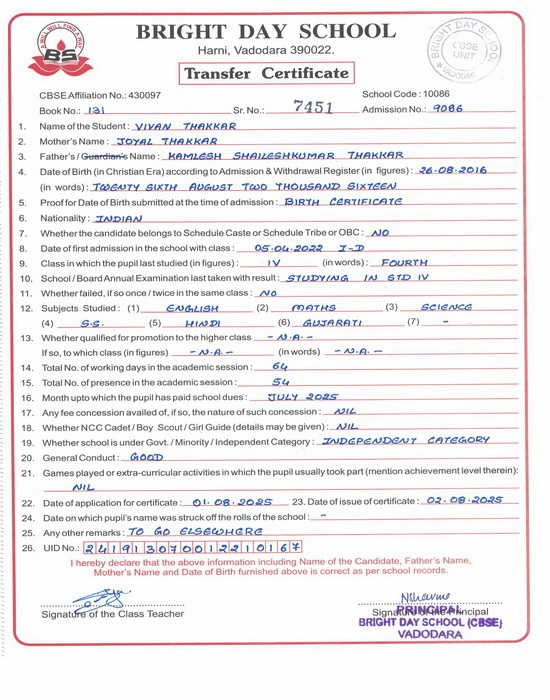 A WILL WILL FIND A WAY
BS
BRIGHT DAY SCHOOL
Harni, Vadodara 390022.
BRIGHT DAY SCHOOL
CBSE
UNIT
VADODARA
Transfer Certificate
CBSE Affiliation No.: 430097 School Code : 10086
Book No.: 131 Sr. No.: 7451 Admission No.: 9086
1. Name of the Student : VIVAN THAKKAR
2. Mother's Name : JOYAL THAKKAR
3. Father's / Guardian's Name : KAMLESH SHAILESHKUMAR THAKKAR
4. Date of Birth (in Christian Era) according to Admission & Withdrawal Register (in figures) : 26-08-2016
(in words) : TWENTY SIXTH AUGUST TWO THOUSAND SIXTEEN
5. Proof for Date of Birth submitted at the time of admission : BIRTH CERTIFICATE
6. Nationality : INDIAN
7. Whether the candidate belongs to Schedule Caste or Schedule Tribe or OBC : NO
8. Date of first admission in the school with class : 05.04.2022 I-D
9. Class in which the pupil last studied (in figures) : IV (in words) : FOURTH
10. School / Board Annual Examination last taken with result : STUDYING IN STD IV
11. Whether failed, if so once / twice in the same class : NO
12. Subjects Studied : (1) ENGLISH (2) MATHS (3) SCIENCE
(4) S.S. (5) HINDI (6) GUJARATI (7) -
13. Whether qualified for promotion to the higher class - N.A. -
If so, to which class (in figures) - N.A. - (in words) - N.A. -
14. Total No. of working days in the academic session : 64
15. Total No. of presence in the academic session : 54
16. Month upto which the pupil has paid school dues : JULY 2025
17. Any fee concession availed of, if so, the nature of such concession : NIL
18. Whether NCC Cadet / Boy Scout / Girl Guide (details may be given) : NIL
19. Whether school is under Govt. / Minority / Independent Category : INDEPENDENT CATEGORY
20. General Conduct : GOOD
21. Games played or extra-curricular activities in which the pupil usually took part (mention achievement level therein):
NIL
22. Date of application for certificate : 01-08-2025 23. Date of issue of certificate : 02-08-2025
24. Date on which pupil's name was struck off the rolls of the school : -
25. Any other remarks : TO GO ELSEWHERE
26. UID No.: 241913070012210167
I hereby declare that the above information including Name of the Candidate, Father's Name,
Mother's Name and Date of Birth furnished above is correct as per school records.
Signature of the Class Teacher Signature of the Principal
PRINCIPAL
BRIGHT DAY SCHOOL (CBSE)
VADODARA